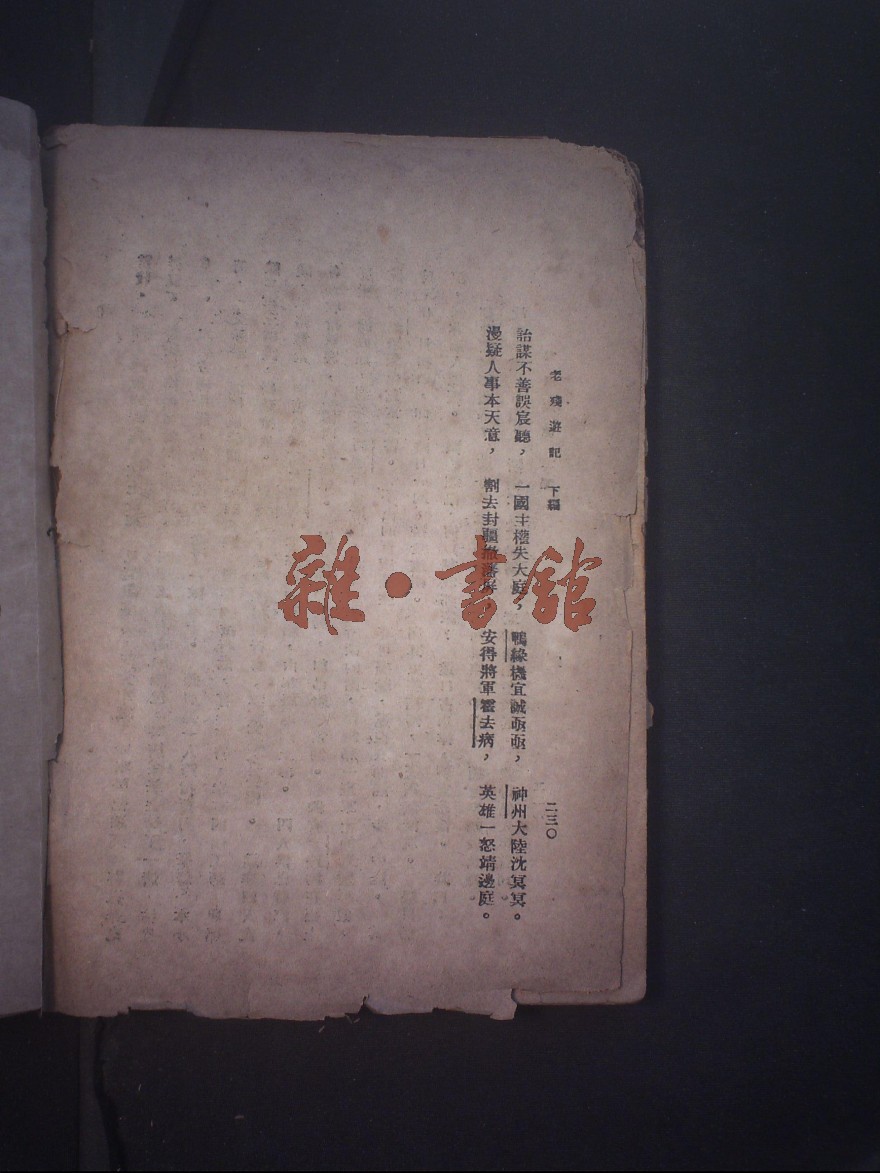 老殘遊記 下編 二三〇
詒謀不善誤宸聽， 一國主權失大庭， 鴨綠機宜誠亟亟， 神州大陸沈冥冥。
漫疑人事本天意， 割去封疆撤藩屏 安得將軍霍去病， 英雄一怒靖邊庭。
雜·書館